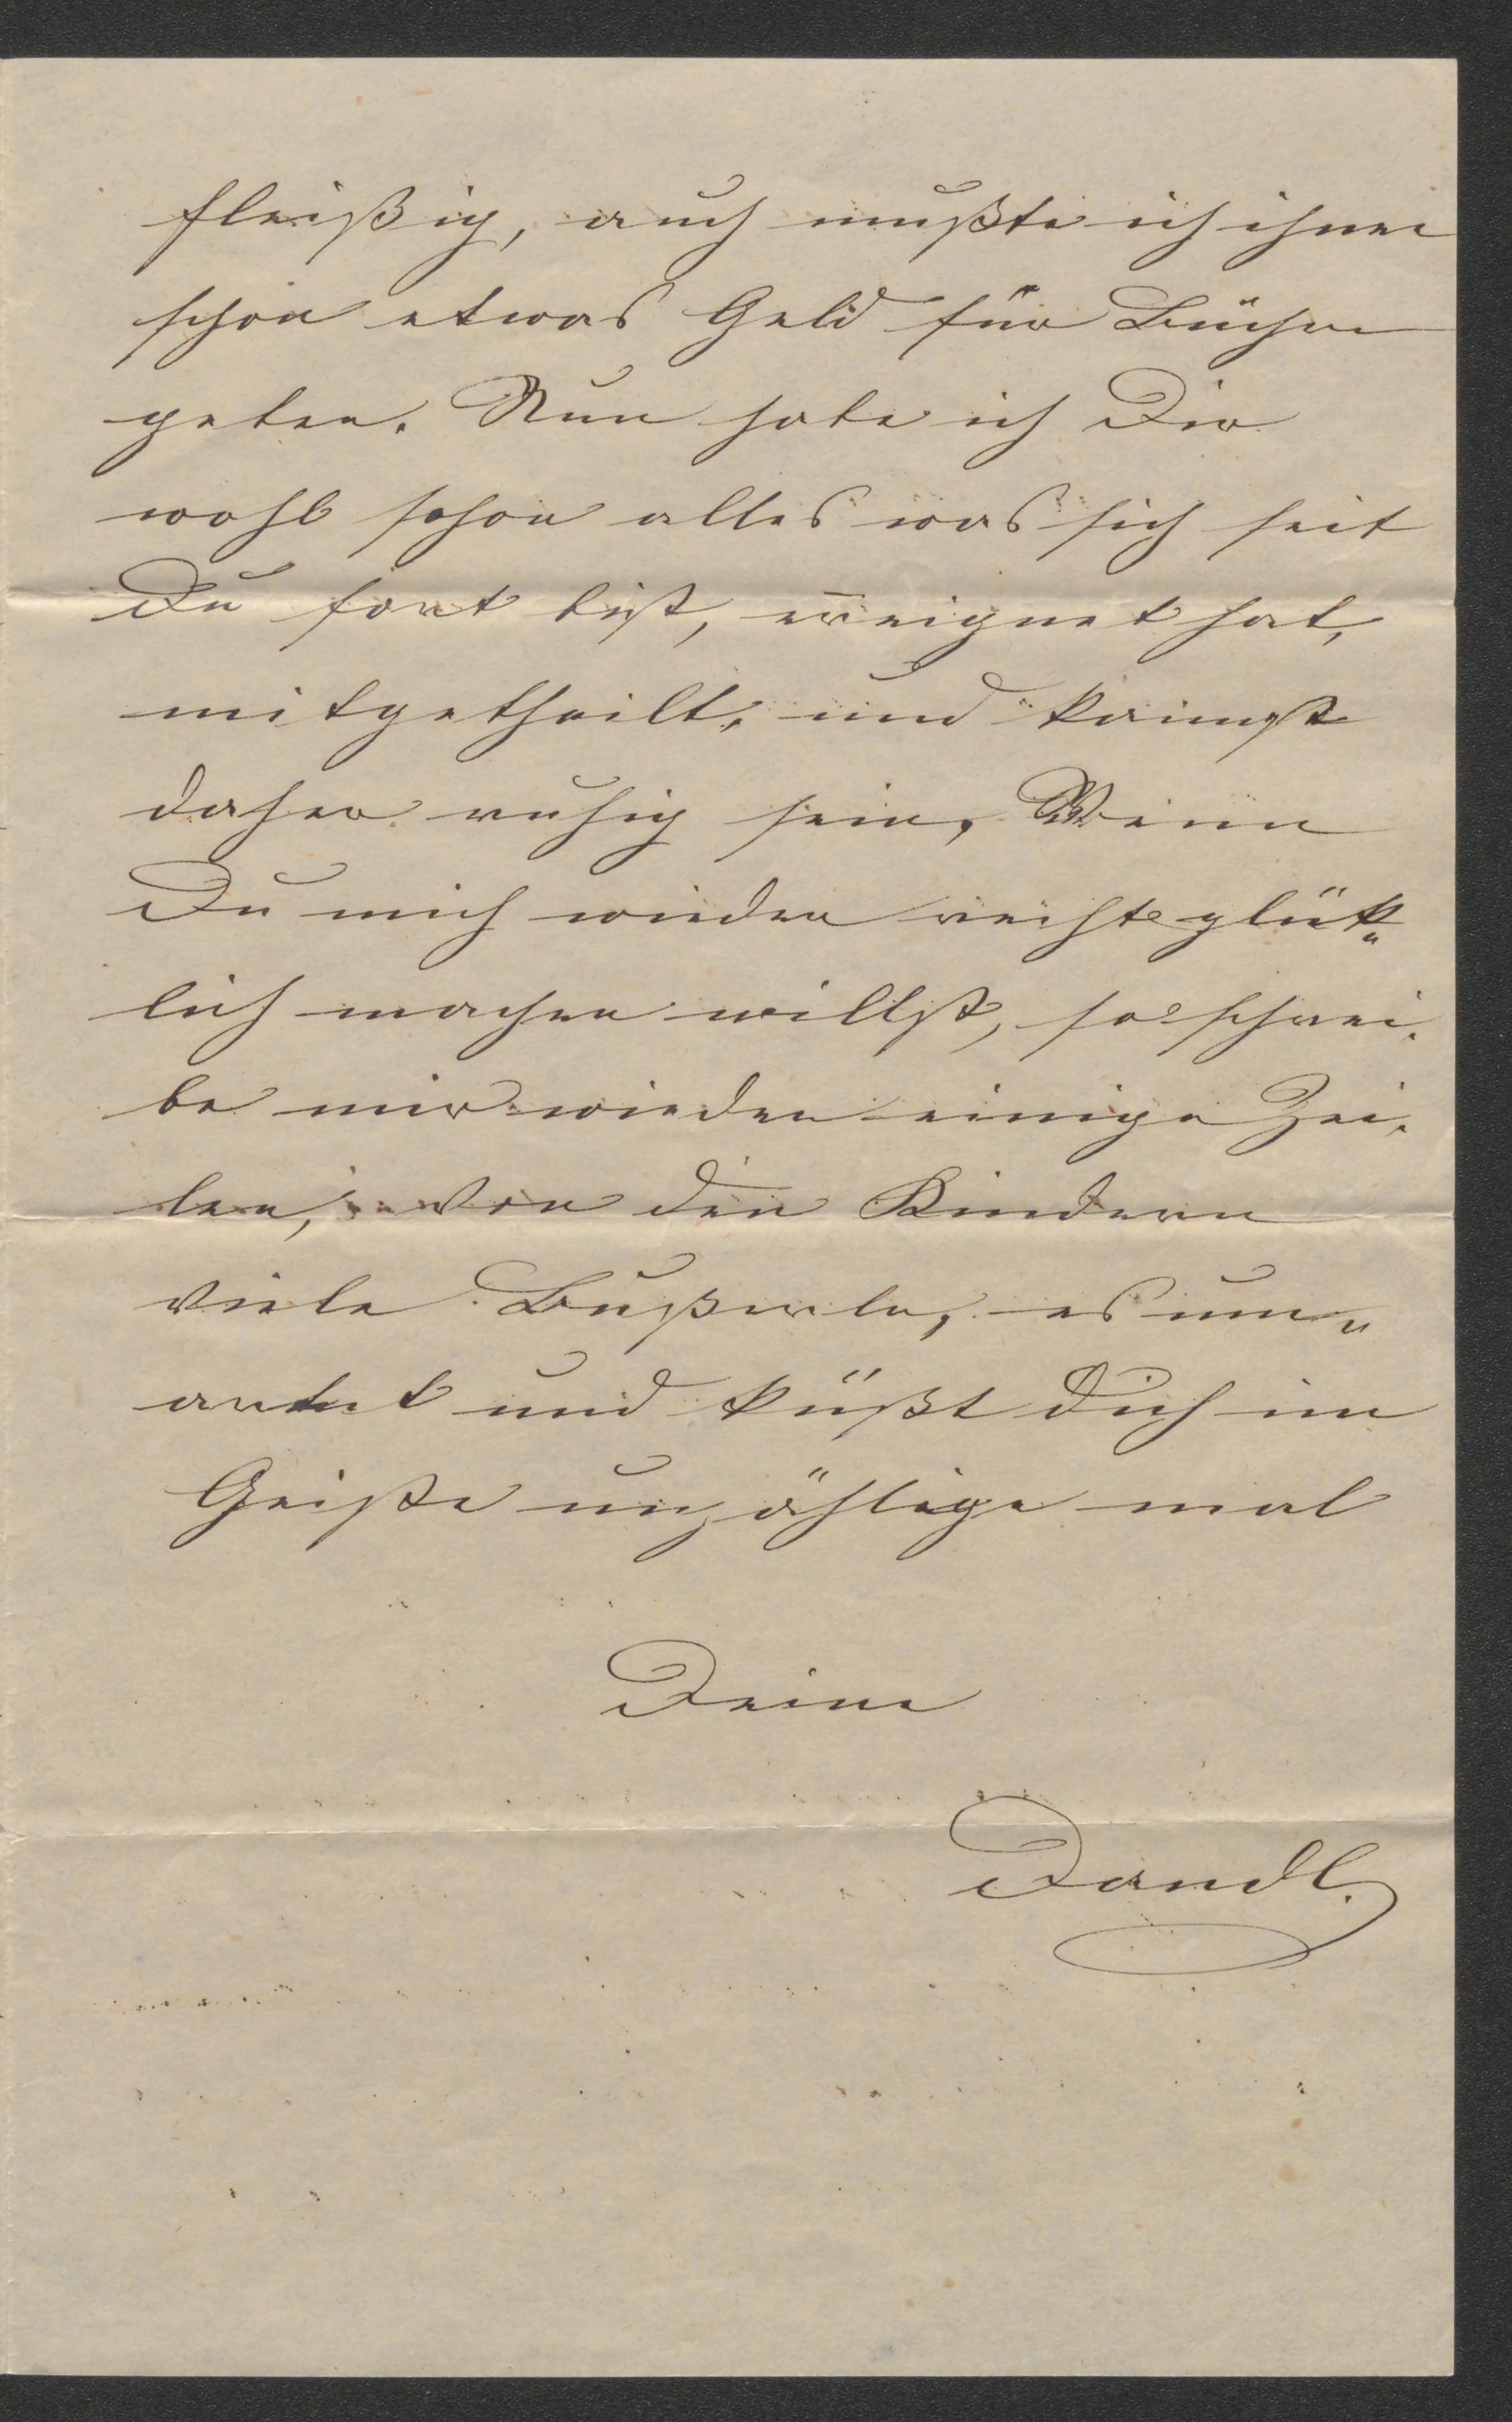 fleißig, auch mußte ich ihnen
schon etwas Geld für Bücher
geben. Nun habe ich Dir
wohl schon alles was sich seit
Du fort bist, ereignet hat,
mitgetheilt, und kannst
daher ruhig sein, Wenn
Du mich wieder recht glük„
lich machen willst, so schrei„
be mir wieder einige Zei„
len, von den Kindern
viele Bußerln, es um„
armt und küßt Dich im
Geiste unzählige mal
Deine
Dandl.